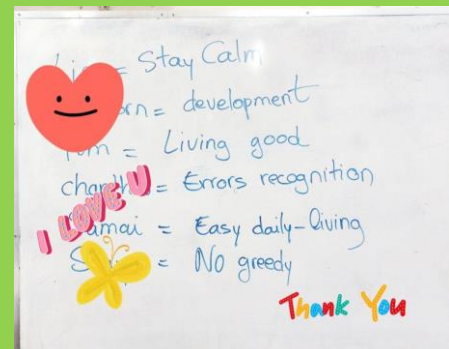 = Stay Calm
= development
= Living good
= Errors recognition
= Easy daily-living
= No greedy
I LOVE U
Thank You